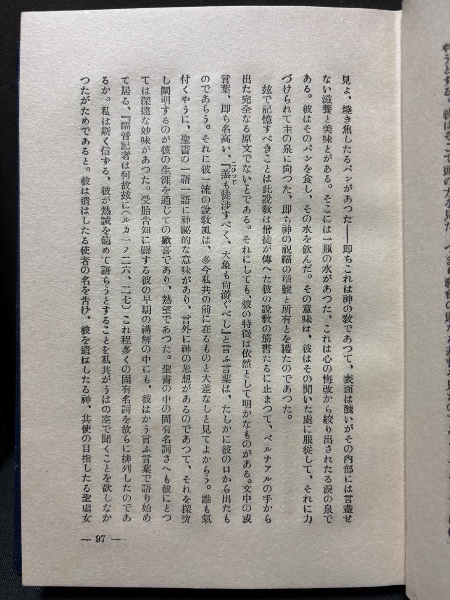 見よ、燒き焦したるパンがあつた──卽ちこれは神の敎であつて、表面は醜いがその內部には言盡せ
ない滋養と美味とがある。そこには一瓶の水があつた、これは心の悔改から絞り出されたる淚の泉で
ある。彼はそのパンを食し、その水を飮んだ。その意味は、彼はその聞いた處に服從して、それに力
づけられて主の泉に向つた、卽ち神の祝福の稱號と所有とを獲たのであつた。
玆で記憶すべきことは此說敎は僧徒が傳へた彼の說敎の筋書たるに止まつて、ベルナアルの手から
出た完全なる原文でないとである。それにしても、彼の特徵は依然として明かなものがある。文中の或
言葉、卽ち名高い、『羔も徒涉すべく、大象も尙游ぐべし』と言ふ言葉は、たしかに彼の口から出たも
のであらう。それに彼一流の說敎風は、多今私共の前に在るものと大差なしと見てよからう。誰も氣
付くやうに、聖書の一語一語に神祕的な意味があり、言外に神の思想があるのであつて、それを探究
し闡明するのが彼の生涯を通じての歡喜であり、熱望であつた。聖書の中の固有名詞さへも彼にとつ
ては深遠な妙味があつた。受胎告知に關する彼の早期の講解の中にも、彼はかう言ふ言葉で語り始め
て居る、『福音記者は何故玆に(ルカ一ノ二六、二七)これ程多くの固有名詞を彼らに排列したのであ
るか。私は斯く信ずる、彼が熱誠を籠めて語らうとすることを私共がうはの空で聞くことを欲しなか
つたがためであると。彼は遣はしたる使者の名を吿げ、彼を遣はしたる神、其使の目指したる聖處女
— 97 —